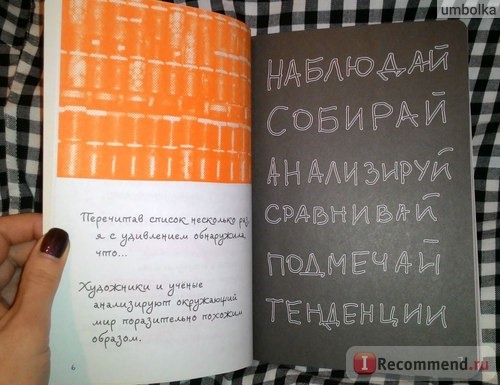 umbolka
Перечитав список несколько раз,
я с удивлением обнаружила,
что...
Художники и учёные
анализируют окружающий
мир поразительно похожим
образом.
6
НАБЛЮДАЙ
СОБИРАЙ
АНАЛИЗИРУЙ
СРАВНИВАЙ
ПОДМЕЧАЙ
ТЕНДЕНЦИИ
I Recommend.ru